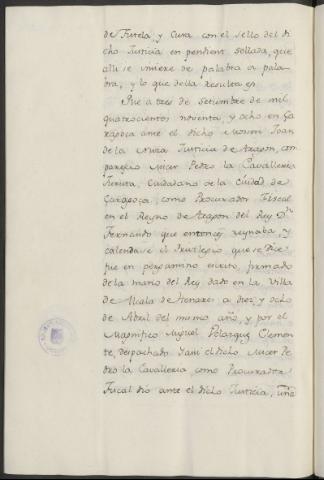 de Tutela y Cura con el sello del di
cho Justicia en pendiente sellada, que
alli se inxiere de palabra a pala-
bra, y lo que della resulta es
Que a tres de Setiembre de mil
quatrocientos noventa y ocho en Ça
ragoça ante el dicho Mossen Joan
de la Nuza Justicia de Aragon, com
parecio Micer Pedro la Cavalleria
Jurista, Ciudadano de la Ciudad de
Çaragoça, como Procurador Fiscal
en el Reyno de Aragon del Rey Dn
Fernando que entonces reynaba, y
calenda se el Privilegio que se dice
fue en pergamino escrito, firmado
de la mano del Rey dado en la Villa
de Alcala de Henares a diez y ocho
de Abril del mismo año, y por el
Magnifico Miguel Velazquez Clemen-
te, despachado. I assi el dicho Micer Pe
dro la Cavalleria como Procurador
Fiscal dió ante el dicho Justicia, una